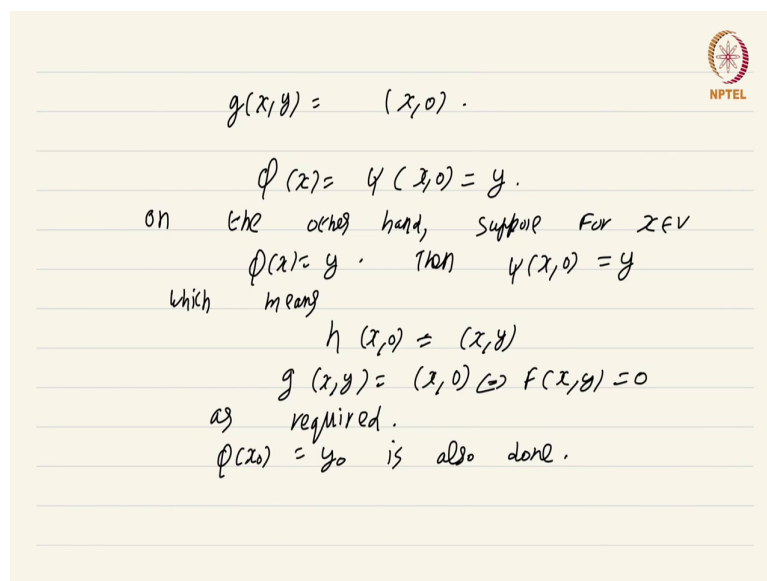 NPTEL
g(x,y) = (x,0).
φ(x) = ψ(x,0) = y.
on the other hand, suppose for x ∈ V
φ(x) = y. Then ψ(x,0) = y
which means
h(x,0) = (x,y)
g(x,y) = (x,0) ⇔ F(x,y) = 0
as required.
φ(x₀) = y₀ is also done.